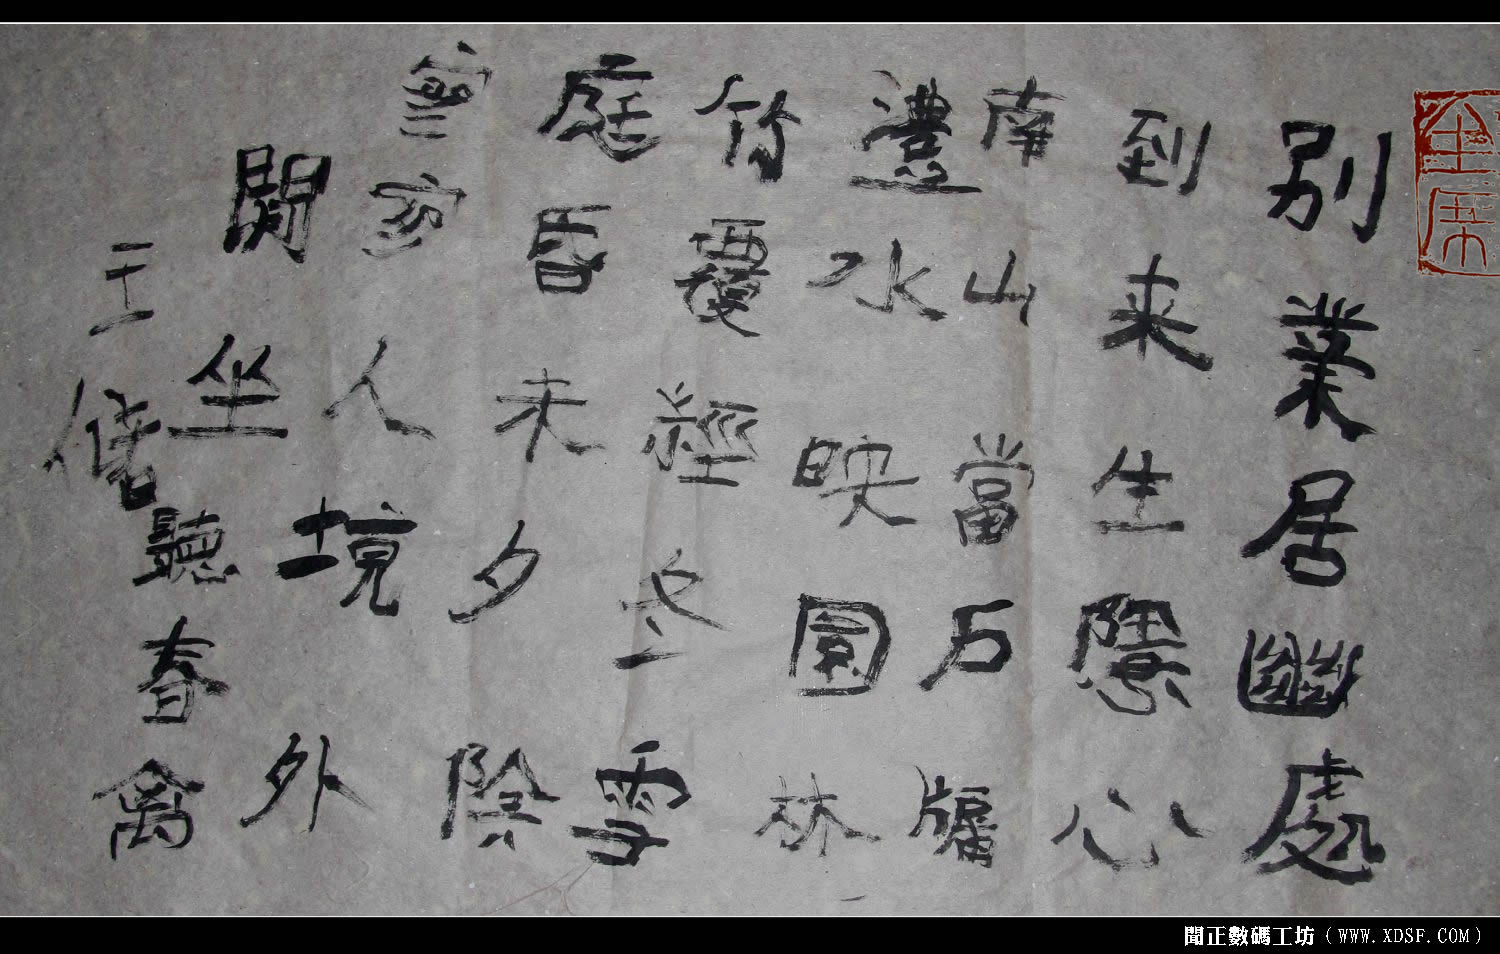 别業居幽處
到来生隱心
南山當户牖
灃水映園林
竹覆經冬雪
庭昏未夕陰
寥寥人境外
閒坐聽春禽
王
聞正數碼工坊（WWW.XDSF.COM）